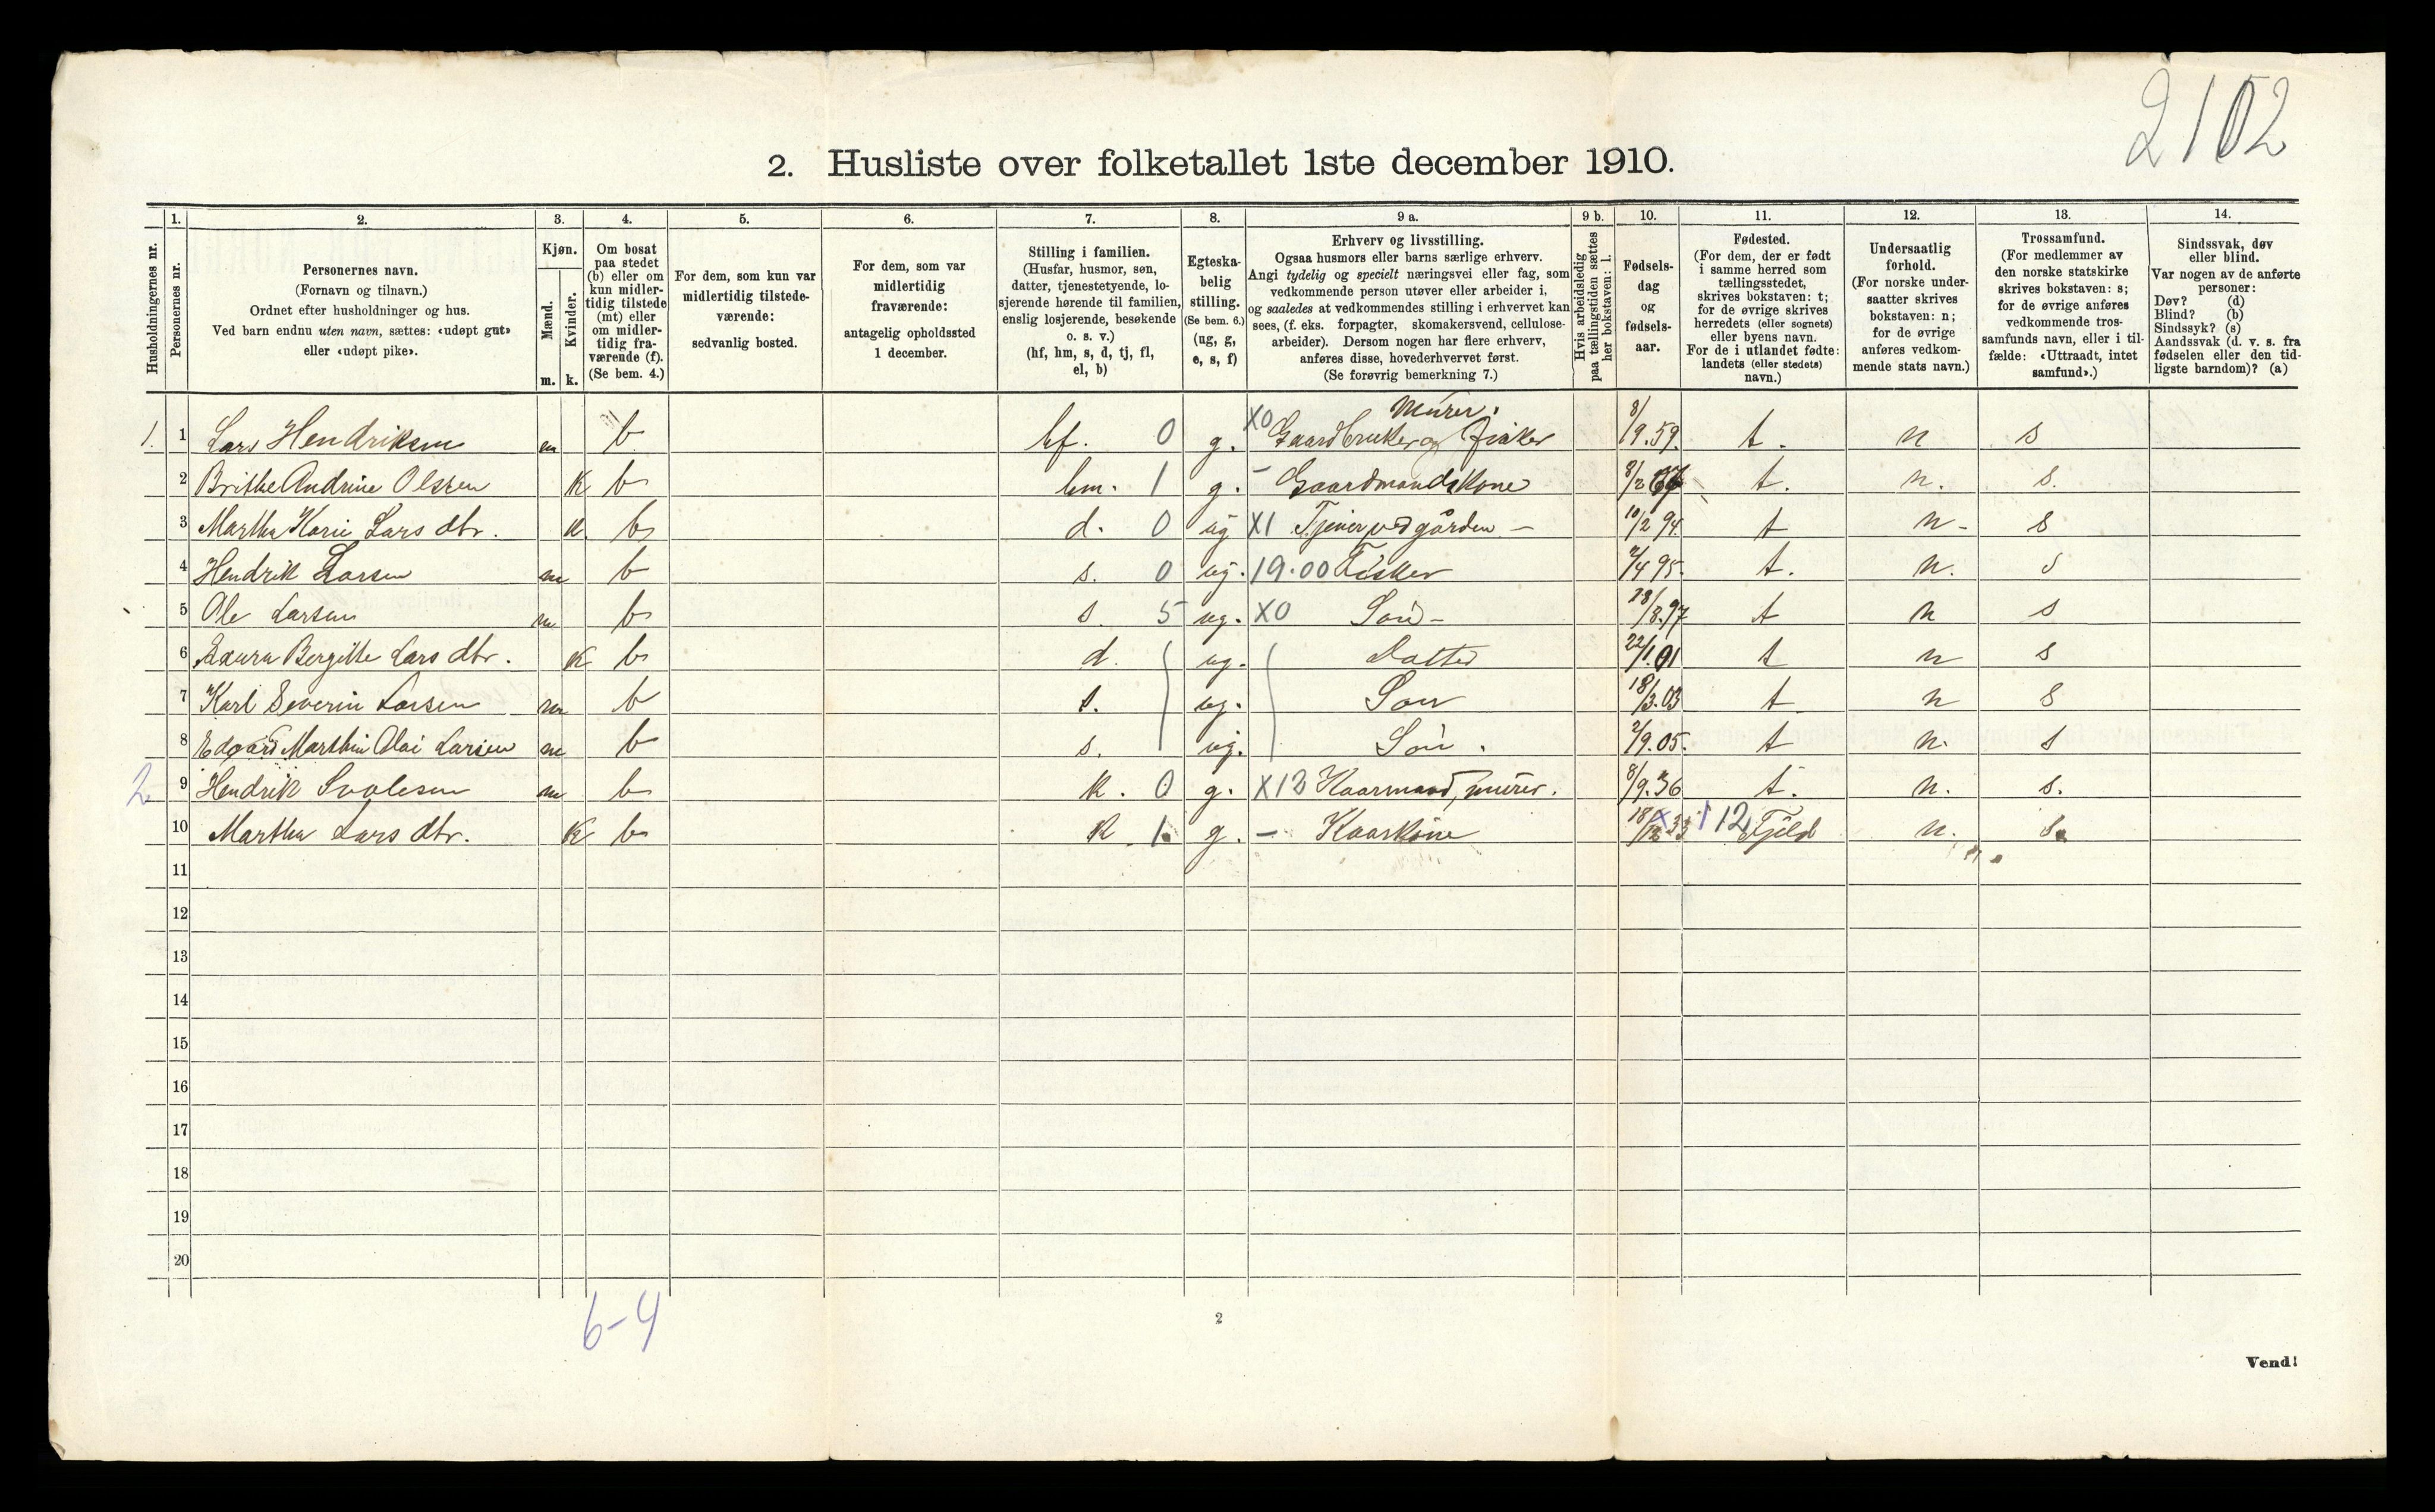 2102
2. Husliste over folketallet 1ste december 1910.
Husholdningernes nr.
1. Personernes nr.
2. Personernes navn. (Fornavn og tilnavn.) Ordnet efter husholdninger og hus. Ved barn endnu uten navn, sættes: «udøpt gut» eller «udøpt pike».
3. Kjøn. Mænd. m. Kvinder. k.
4. Om bosat paa stedet (b) eller om kun midlertidig tilstede (mt) eller om midlertidig fraværende (f). (Se bem. 4.)
5. For dem, som kun var midlertidig tilstedeværende: sedvanlig bosted.
6. For dem, som var midlertidig fraværende: antagelig opholdssted 1 december.
7. Stilling i familien. (Husfar, husmor, søn, datter, tjenestetyende, losjerende hørende til familien, enslig losjerende, besøkende o. s. v.) (hf, hm, s, d, tj, fl, el, b)
8. Egteskabelig stilling. (Se bem. 6.) (ug, g, e, s, f)
9 a. Erhverv og livsstilling. Ogsaa husmors eller barns særlige erhverv. Angi tydelig og specielt næringsvei eller fag, som vedkommende person utøver eller arbeider i, og saaledes at vedkommendes stilling i erhvervet kan sees, (f. eks. forpagter, skomakersvend, cellulosearbeider). Dersom nogen har flere erhverv, anføres disse, hovederhvervet først. (Se forøvrig bemerkning 7.)
9 b. Hvis arbeidsledig paa tællingstiden sættes her bokstaven: l.
10. Fødselsdag og fødselsaar.
11. Fødested. (For dem, der er født i samme herred som tællingsstedet, skrives bokstaven: t; for de øvrige skrives herredets (eller sognets) eller byens navn. For de i utlandet fødte: landets (eller stedets) navn.)
12. Undersaatlig forhold. (For norske undersaatter skrives bokstaven: n; for de øvrige anføres vedkommende stats navn.)
13. Trossamfund. (For medlemmer av den norske statskirke skrives bokstaven: s; for de øvrige anføres vedkommende trossamfunds navn, eller i tilfælde: «Uttraadt, intet samfund».)
14. Sindssvak, døv eller blind. Var nogen av de anførte personer: Døv? (d) Blind? (b) Sindssyk? (s) Aandssvak (d. v. s. fra fødselen eller den tidligste barndom)? (a)
Murer.
1. 1 Lars Hendriksen m b hf. 0 g. X0 Gaardbruker og Fisker 8/9.59. t. n s
2 Brithe Andrine Olsen k b hm. 1 g. - Gaardmandskone t. n. s.
3 Martha Karie Lars dtr. k. b d. 0 ug X1 Tjener ved gården - 10/2 94. t n- s
4 Hendrik Larsen m b s. 0 ug. 19.00 Fisker 7/4 95. t. n. s
5 Ole Larsen m b s. 5 ug. X0 Søn - 28/8.97 t n s
6 Laura Bergitte Lars dtr. k b d. ug. Datter 22/1.01 t n s
7 Karl Severin Larsen m b s. ug. Søn 18/3.03 t n s
8 Edvard Marthin Olai Larsen m b s. ug. Søn. 2/9.05. t n. s
2 9 Hendrik m b k. 0 g. X12 Kaarmand, murer. 8/9.36 t. n. s.
10 Martha Lars dtr. k b k. 1. g. - Kaarkone 18/12 33 112 Fjeld n. s.
11
12
13
14
15
16
17
18
19
20
6-4
2
Vend!